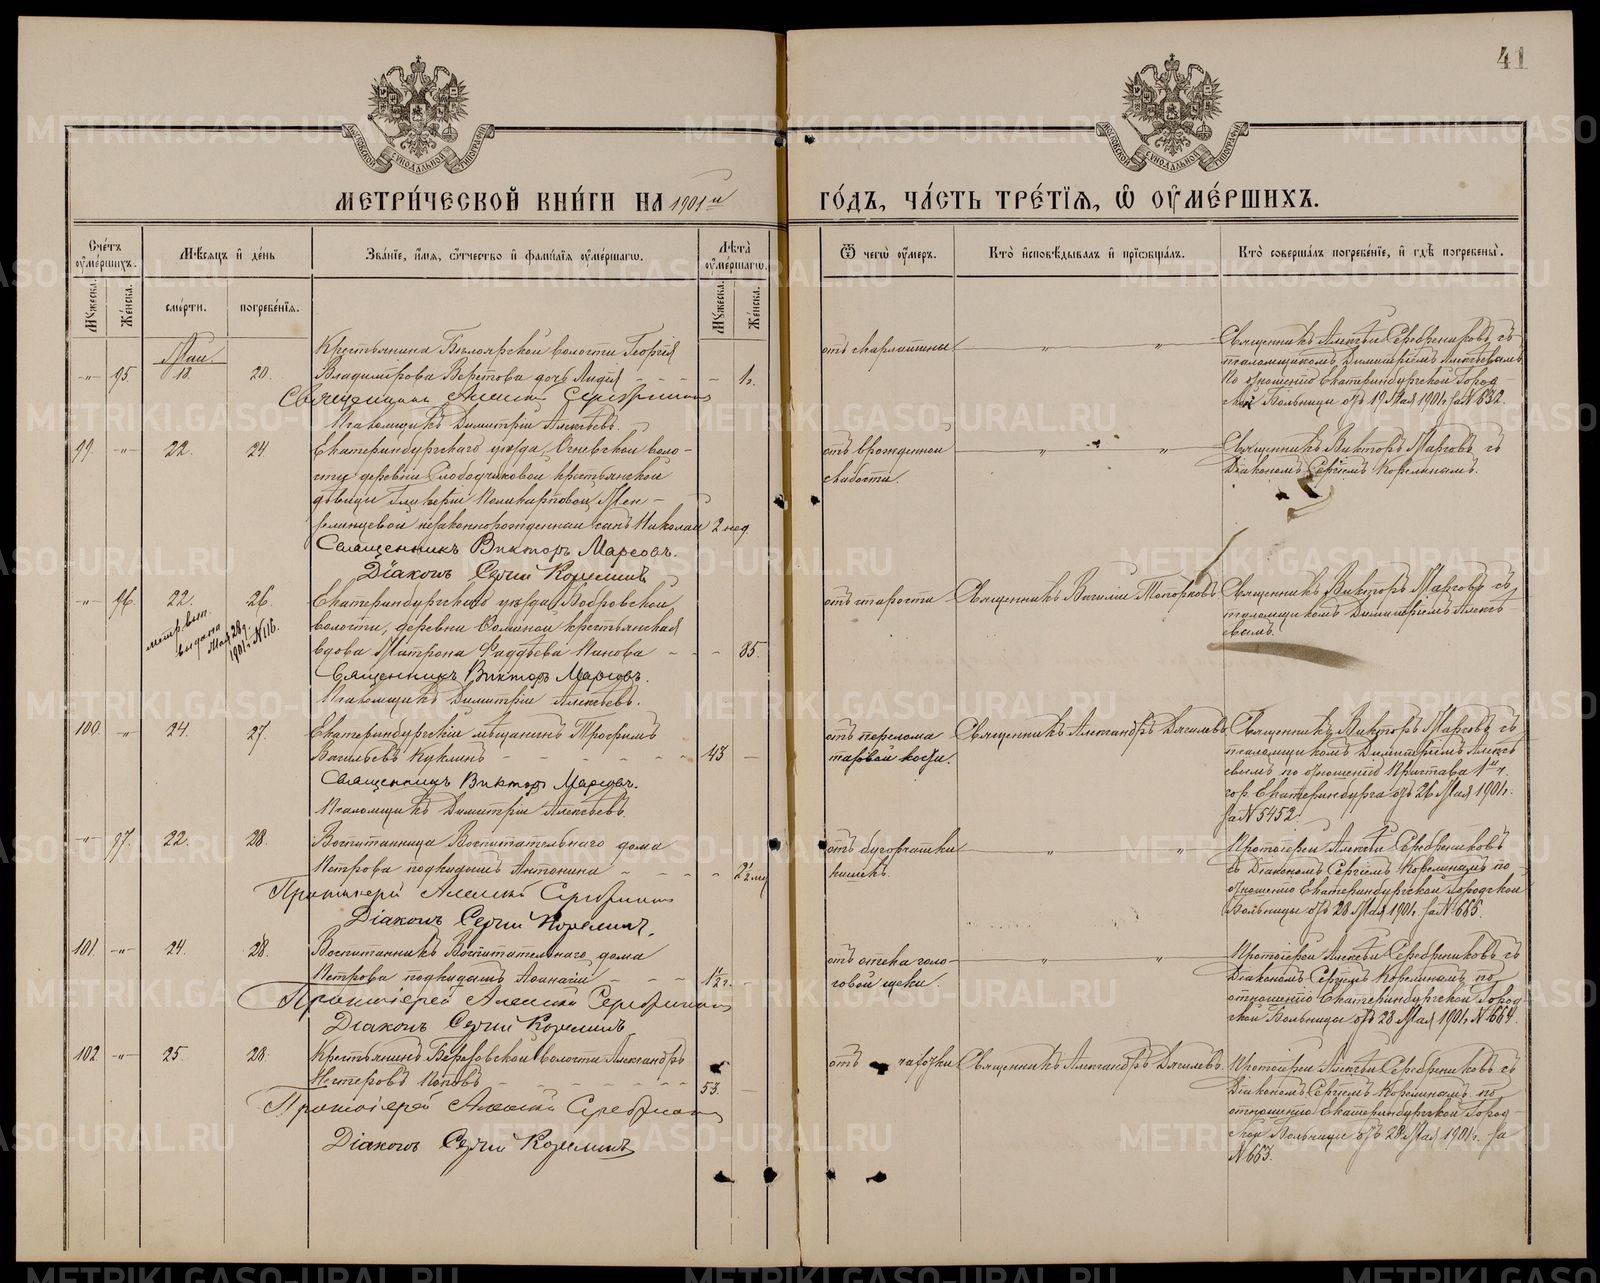 41
МОСКОВСКОЙ СѴНОДАЛЬНОЙ ТИПОГРАФІИ
МОСКОВСКОЙ СѴНОДАЛЬНОЙ ТИПОГРАФІИ
МЕТРИ́ЧЕСКОЙ КНИ́ГИ НА 1901й ГО́ДЪ, ЧА́СТЬ ТРЕ́ТІѦ, Ѡ ОУ҆МЕ́РШИХЪ.
Сче́тъ оу҆ме́ршихъ.
Мѣ́сѧцъ и҆ де́нь
Зва́нїе, и҆́мѧ, ѻ҆́тчество и҆ фами́лїѧ оу҆ме́ршагѡ.
Лѣ́та оу҆ме́ршагѡ.
Ѿ чегѡ̀ оу҆́меръ.
Кто̀ и҆сповѣ́дывалъ и҆ прїѡбща́лъ.
Кто̀ соверша́лъ погребе́нїе, и҆ гдѣ̀ погребены̀.
Мꙋ́жеска.
Же́нска.
сме́рти.
погребе́нїѧ.
Мꙋ́жеска.
Же́нска.
Май.
-„- 95. 18. 20.
Крестьянина Бѣлоярской волости Георгія
Владимірова Верстова дочь Лидія - - - - 1 г.
Священникъ Алексѣй Серебрениковъ
Псаломщикъ Димитрій Алексѣевъ.
отъ скарлатины
Священникъ Алексѣй Серебрениковъ съ
псаломщикомъ Димитріемъ Алексѣевымъ
по отношенію Екатеринбургской Город-
ской Больницы отъ 19 Мая 1901 г. за № 632.
99. -„- 22. 24.
Екатеринбургскаго уѣзда, Огневской воло-
сти деревни Слободчиковой крестьянской
дѣвицы Гликеріи Поликарповой Мен-
незаконнорожденный сынъ Николай 2 нед.
Священникъ Викторъ Марсовъ.
Діаконъ Сергій Корелинъ
отъ врожденной
слабости.
Священникъ Викторъ Марсовъ съ
Діакономъ Сергіемъ Корелинымъ.
-„- 96. 22. 26.
метр. вып.
выдана
Мая 28 д.
1901 г. № 116.
Екатеринбургскаго уѣзда, Бобровской
волости, деревни Фоминой крестьянская
вдова Матрона Фаддѣева Панова - - - 85.
Священникъ Викторъ Марсовъ.
Псаломщикъ Димитрій Алексѣевъ.
отъ старости
Священникъ Василій Топорковъ
Священникъ Викторъ Марсовъ съ
псаломщикомъ Димитріемъ Алексѣ-
евымъ.
100. -„- 24. 27.
Екатеринбургскій мѣщанинъ Трофимъ
Васильевъ Куклинъ - - - - - - - 43 -
Священникъ Викторъ Марсовъ.
Псаломщикъ Димитрій Алексѣевъ.
отъ перелома
тазовой кости.
Священникъ Александръ Дягилевъ
Священникъ Викторъ Марсовъ съ
псаломщикомъ Димитріемъ Алексѣ-
евымъ по отношенію Пристава 1й ч.
гор. Екатеринбурга отъ 26 Мая 1901 г.
за № 5452.
-„- 97. 22. 28.
Воспитанница Воспитательнаго дома
Петрова подкидышъ Антонина - - - - - 2½ мц
Протоіерей Алексѣй Серебрениковъ
Діаконъ Сергій Корелинъ.
отъ бугорчатки
кишекъ.
Протоіерей Алексѣй Серебрениковъ
съ Діакономъ Сергіемъ Корелинымъ по
отношенію Екатеринбургской Городской
Больницы отъ 28 Мая 1901 г. за № 665.
101. -„- 24. 28.
Воспитанникъ Воспитательнаго дома
Петрова подкидышъ Аѳанасій - - - 1½ г. -
Протоіерей Алексѣй Серебрениковъ
Діаконъ Сергій Корелинъ.
отъ отека голо-
Протоіерей Алексѣй Серебрениковъ съ
Діакономъ Сергіемъ Корелинымъ по
отношенію Екатеринбургской Город-
ской Больницы отъ 28 Мая 1901 г. № 664.
102. -„- 25. 28.
Крестьянинъ Березовской волости Александръ
Нестеровъ Поповъ - - - - - - - 53. -
Протоіерей Алексѣй Серебрениковъ
Діаконъ Сергій Корелинъ
отъ чахотки
Священникъ Александръ Дягилевъ.
Протоіерей Алексѣй Серебрениковъ съ
Діакономъ Сергіемъ Корелинымъ по
отношенію Екатеринбургской Город-
ской Больницы отъ 28 Мая 1901 г. за
№ 663.
METRIKI.GASO-URAL.RU